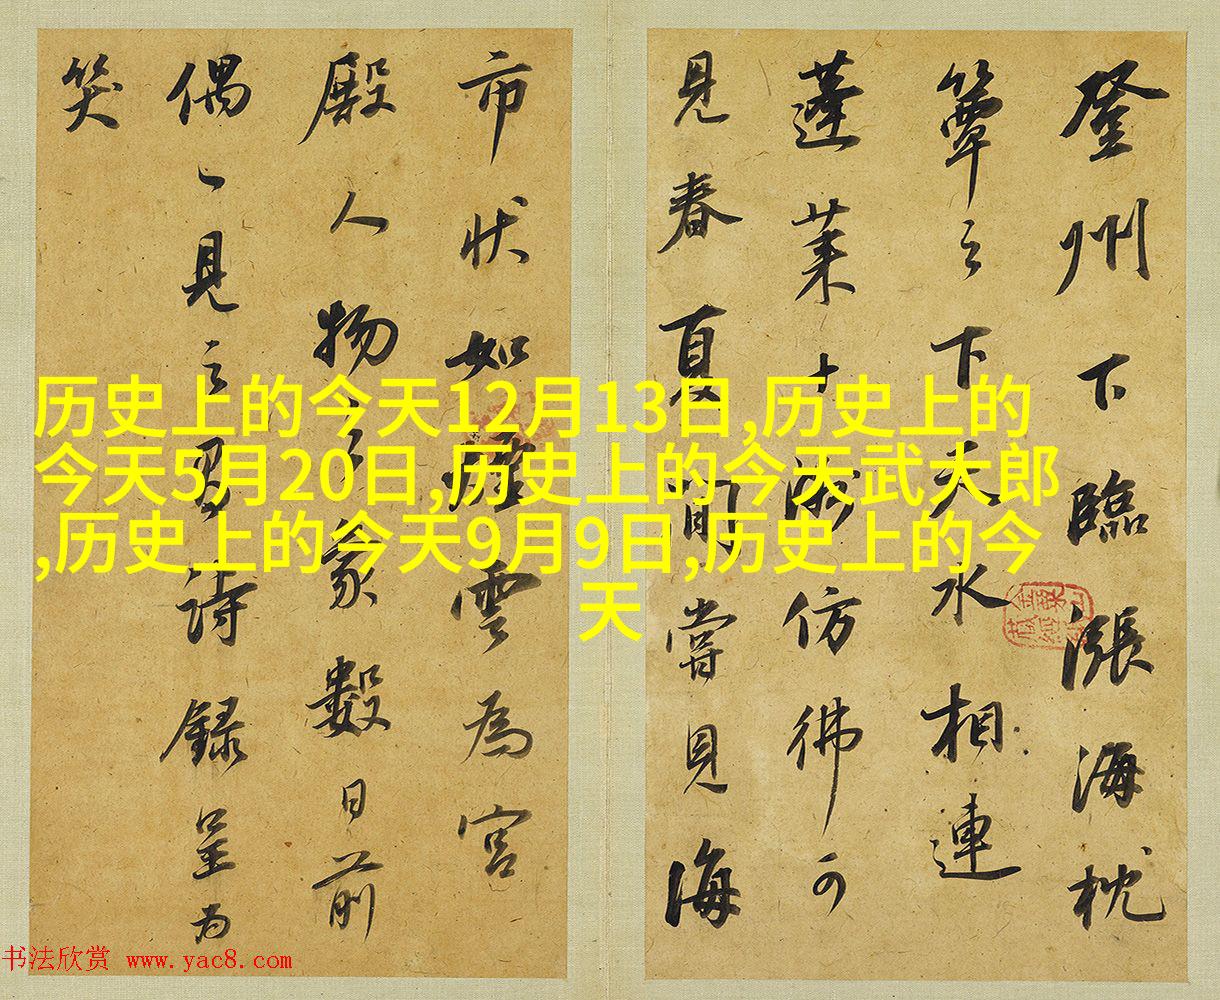 登州下臨漲海枕
簟之下天水相連
蓬莱十洲仿彿可
見春夏間嘗見海
市状如煙雲為宫
殿人物之象數日前
偶一見之詩録呈为
笑
历史上的今天12月13日,历史上的
今天5月20日,历史上的今天武大郎
,历史上的今天9月9日,历史上的今
天
书法欣赏 www.yac8.com